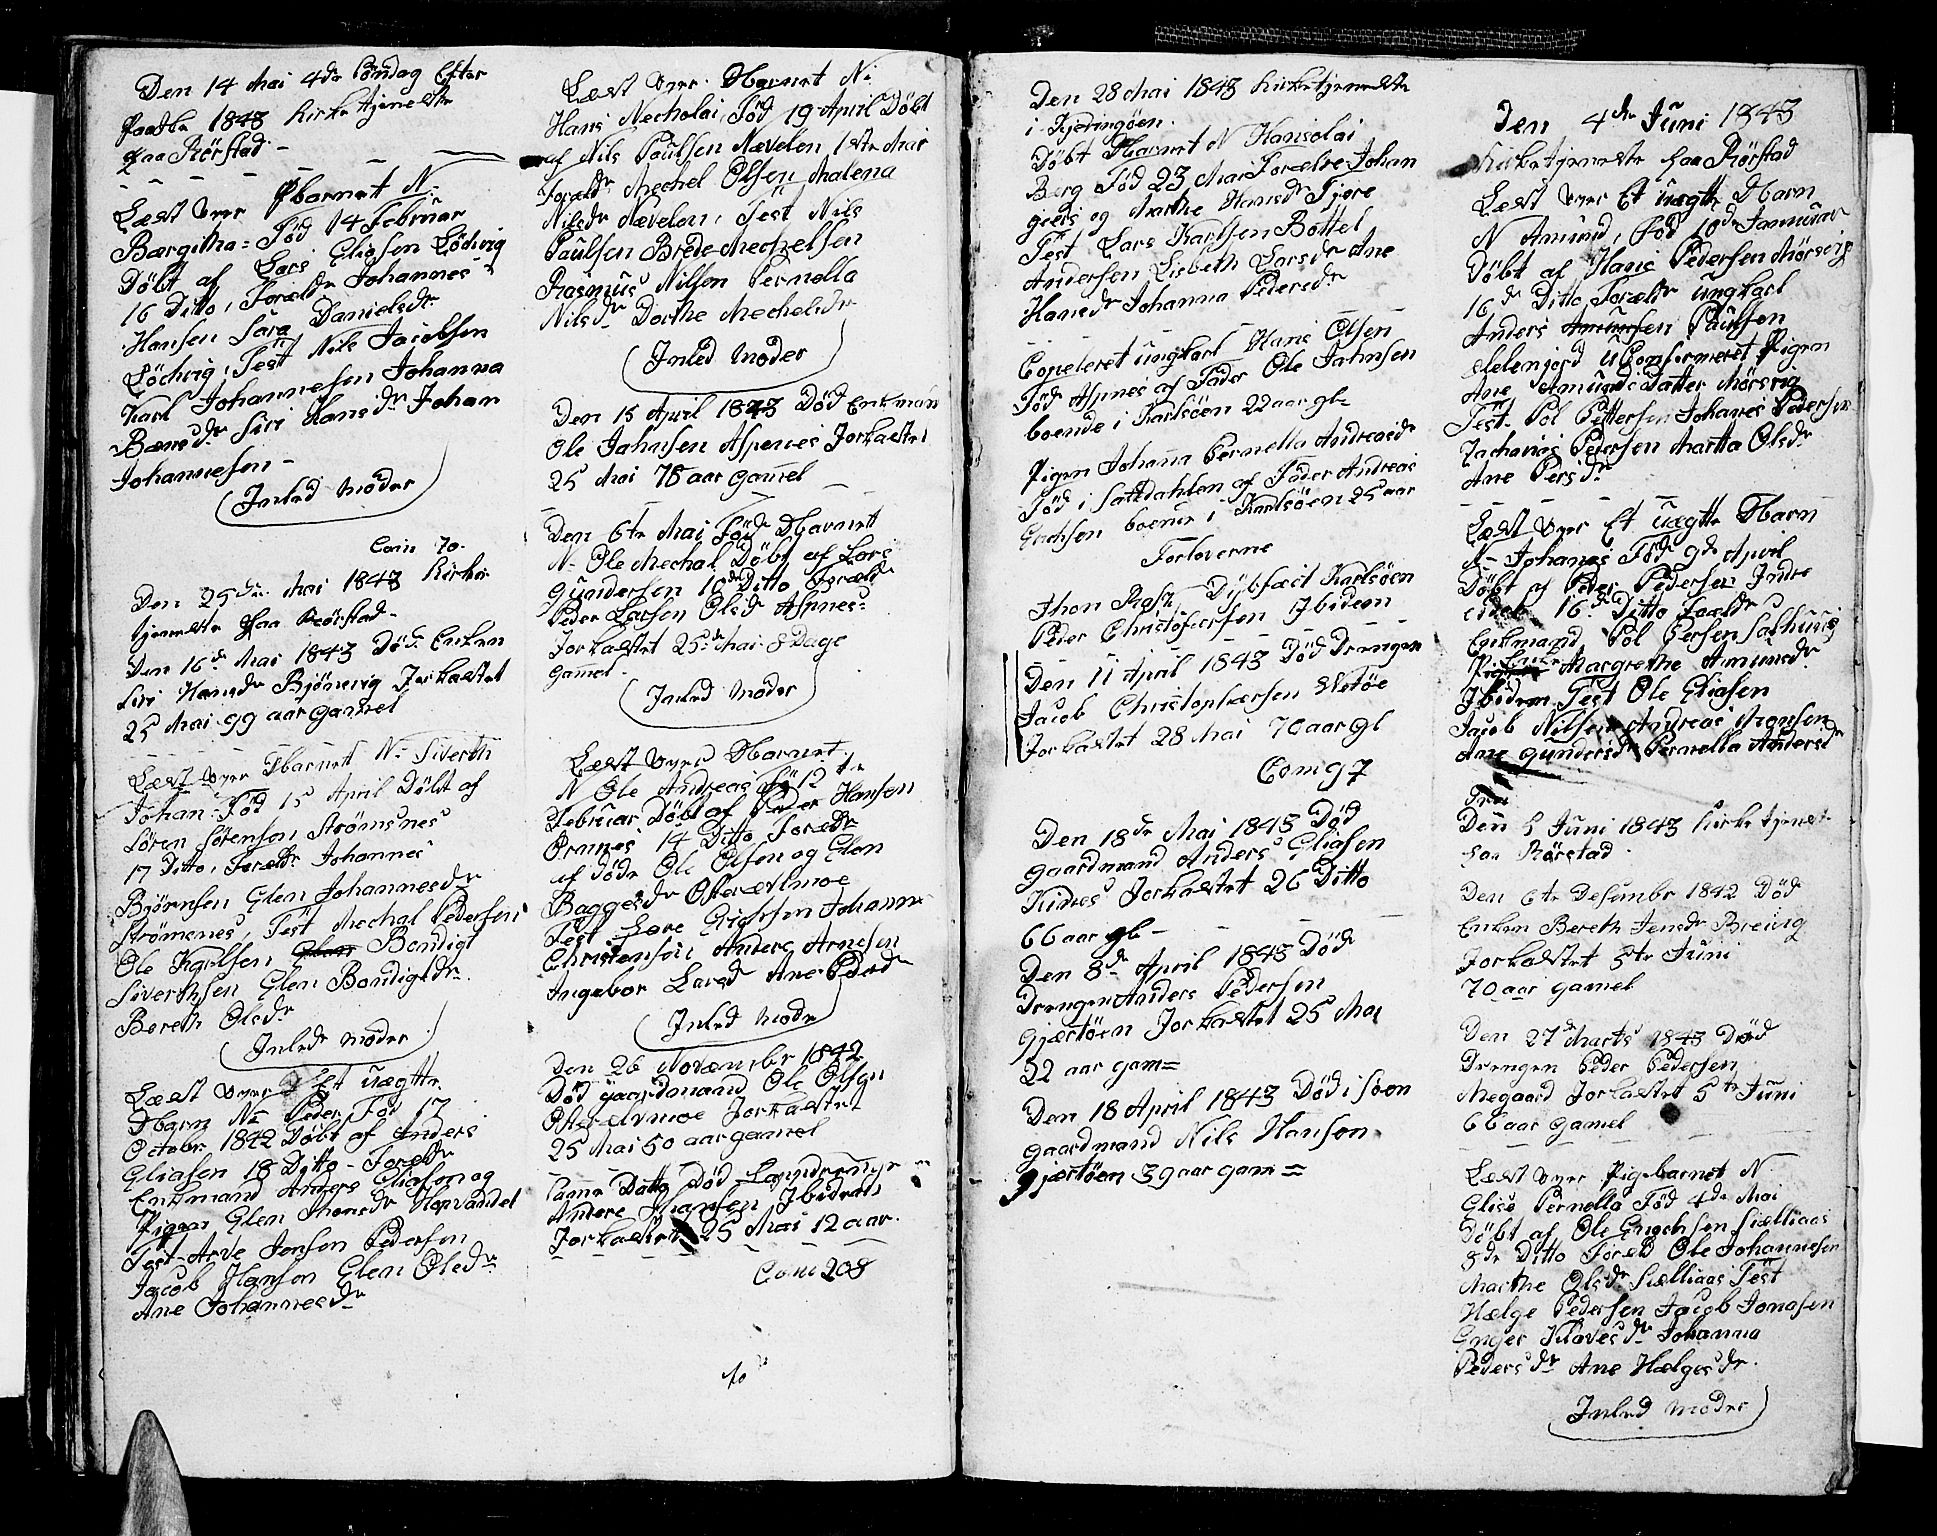 Den 14 Mai 4de Söndag Efter
Paaske 1843 Kirketjeneste
paa Rörstad
Læst over Pbarnet N:
Bærgitha = Föd 14 Februar
Döbt af Lars Eliasen Lödvig
16 Ditto, Forældr Johannes
Hansen Sara Danielsdr
Lödvig, Test Nils Jacobsen
Karl Johannesen Johanna
Bænsdr Siri Hansdr Johan
Johannesen
Inled Moder
Com 70.
Den 25de Mai 1843 Kirke
tjeneste paa Rörstad
Den 16de Mai 1843 Döde Enken
Siri Hansdr Bjönsvig Jorkastet
25 Mai 99 aar gammel
Læst over Dbarnet N: Siverth
Johan = Föd 15 April Döbt af
Sören Sörensen Strömsnes
17 Ditto, Forældr Johannes
Björnsen Elen Johannesdr
Strömsnes, Test Mechal Pedersen
Ole Karlsen Bendigt
Siverthsen Elen Bendigtsdr
Bereth Olsdr
Inledr Moder
Læst over Et Uægtte
Dbarn N= Peder Föd 17
Octobr 1842 Döbt af Anders
Eliasen 18 Ditto = Forældr
Enkmand Anders Eliasen og
Pigen Elen Thonesdr Hopvandet
Test Arve Jensen Pedersen
Jacob Hansen Elen Olsdr
Ane Johannesdr
Læst over Dbarnet N:
Hans Necholai Föd 19 April Döbt
af Nils Paulsen Nævelen 1ste Mai
Foreldr Mechel Olsen Malena
Nilsdr Nævelen, Test Nils
Paulsen Brede Mechelsen
Rasmus Nilsen Pernella
Nilsdr Dorthe Mechelsdr
Inled Moder
Den 15 April 1843 Död Enkmand
Ole Jahnsen Aspenes Jorkastes
25 Mai 75 aar gamel
Den 6te Mai Föd Dbarnet
N= Ole Mechal Döbt af Lars
Gundersen 10de Ditto Foreldr
Peder Larsen Olsdr Aspnes
Jorkastet 25de Mai 8 Dage
gamel.
Inled Moder
Læst over Dbarnet
N Ole Andreas Föd 12te
Februar Döbt af Peder Hansen
Ornnes 14 Ditto Foreldr
af döde Ole Olsen og Elen
Baggesdr Osterælvmoe
Test Lars Erichsen Johann
Christensen Anders Arnesen
Ingebor Larsdr Ane Pedsdr
Inled Modr
Den 26 November 1842
Död gaardmand Ole Olsen
Osterelvmoe Jorkastet
25 Mai 50 aar gamel
Same Datto Död
Anders Hansen Ibidem
Jorkastet 25 Mai 12 aar.
Com 208
Den 28 Mai 1843 Kirketjeneste
i Kjeringöen.
Döbt Dbarnet N Hansolai
Berg Föd 23 Mai Forælre Johan
geers og Marthe Hansdr Fjere
Test Lars Karlsen Bottel
Andersen Lisbeth Larsdr Ane
Hansdr Johanna Pedersdr
Copeleret ungkarl Hans Olsen
Föd Aspnes af Fader Ole Jahnsen
boende i Karlsöen 22 aar gl=
Pigen Johanna Pernella Andreasdr
Föd i Saltdahlen af Fader Andreas
Erichsen boende i Karlsöen 25 aar
Forloverne
Jhon Rask Dybfæst Karlsöen
Peder Christofersen Ibidem
Den 11 April 1843 Död Drengen
Jacob Christophersen Vætöe
Jorkastet 28 Mai 70 aar gl
Com 97
Den 18de Mai 1843 Död
gaardmand Anders Eliasen
Kines Jorkastet 26 Ditto
66 aar gl=
Den 8de April 1843 Död
Drengen Anders Pedersen
Gjærtöen Jorkastet 25 Mai
22 aar gam=
Den 18 April 1843 Död i Söen
gaardmand Nils Hanson
Gjærtöen 39 aar gam=
Den 4de Juni 1843
Kirketjeneste paa Rörstad
Læst over Et Uægtte Dbarn
N Amund, Föd 10de Januar
Döbt af Hans Pedersen Mörsvig
16de Ditto Foreldr ungkarl
Anders Paulsen
Helemjord Uconfirmeret Pigen
Ane Amunds Datter Mörsvig
Test Pol Pettersen Johanes Pedersen
Zacharias Pedersen Martta Olsdr
Ane Persdr
Læst over Et Uægtte Dbarn
N= Johanes Föd 9de April
Döbt af Peder Pedersen Indre
16de Ditto Foreldr
Enkmand Pol Persen
Enken Margrethe Amundsdr
Ibidem Test Ole Eliasen
Jacob Nilsen Andreas Monsen
Ane Gundersdr Pernella Andersdr
Den 5 Juni 1843 Kirketjenest
paa Rörstad.
Den 6te Desember 1842 Död
Enken Bereth Jensdr Breivig
Jorkastet 5te Juni
70 aar gamel
Den 27de Marts 1843 Död
Drengen Peder Pedersen
Megaard Jorkastet 5te Juni
66 aar gamel
Læst over Pigebarnet N
Elise Pernella Föd 4de Mai
Döbt af Ole Enochsen Siælliaas
5de Ditto Foreld Ole Johannesen
Marthe Olsdr Siælliaas Test
Hælge Pedersen Jacob Jonasen
Inger Klavesdr Johanna
Pedersdr Ane Hælgesdr.
Inled Moder